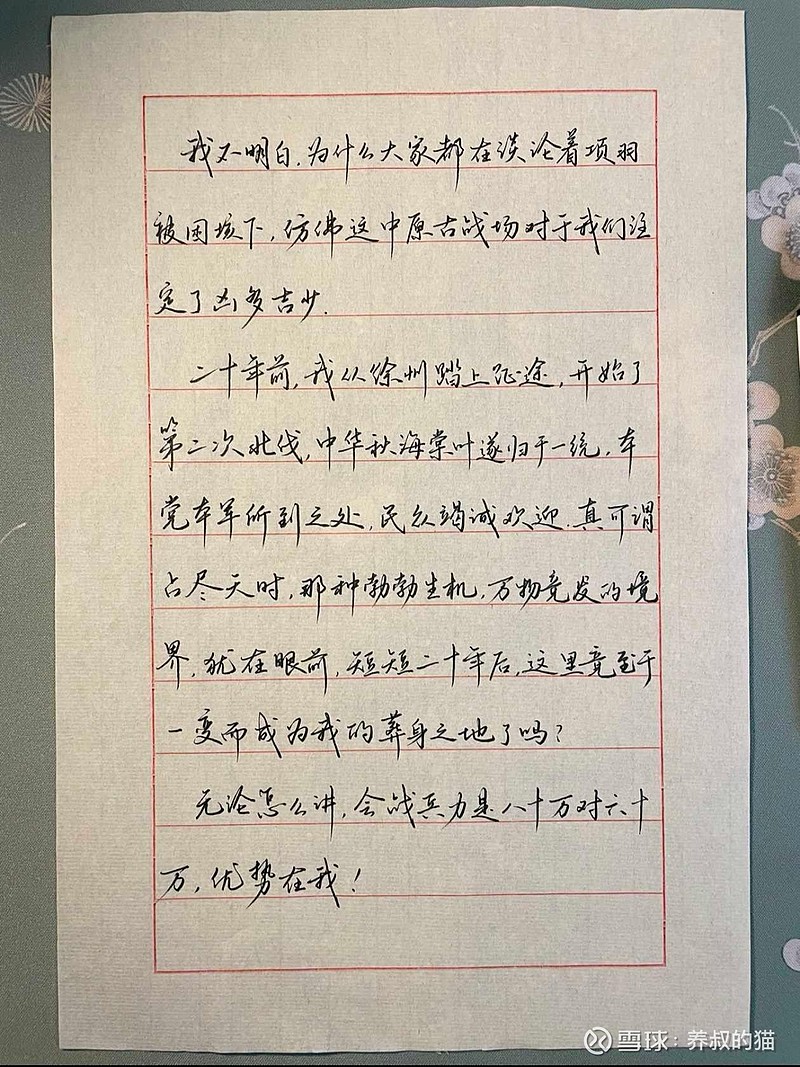 我不明白,为什么大家都在谈论着项羽
被困垓下,仿佛这中原古战场对于我们注
定了凶多吉少.
二十年前,我从徐州踏上征途,开始了
第二次北伐,中华秋海棠叶遂归于一统,本
党本军所到之处,民众竭诚欢迎.真可谓
占尽天时,那种勃勃生机,万物竞发的境
界,犹在眼前,短短二十年后,这里竟至于
一变而成为我的葬身之地了吗?
无论怎么讲,会战兵力是八十万对六十
万,优势在我!
雪球:养叔的猫